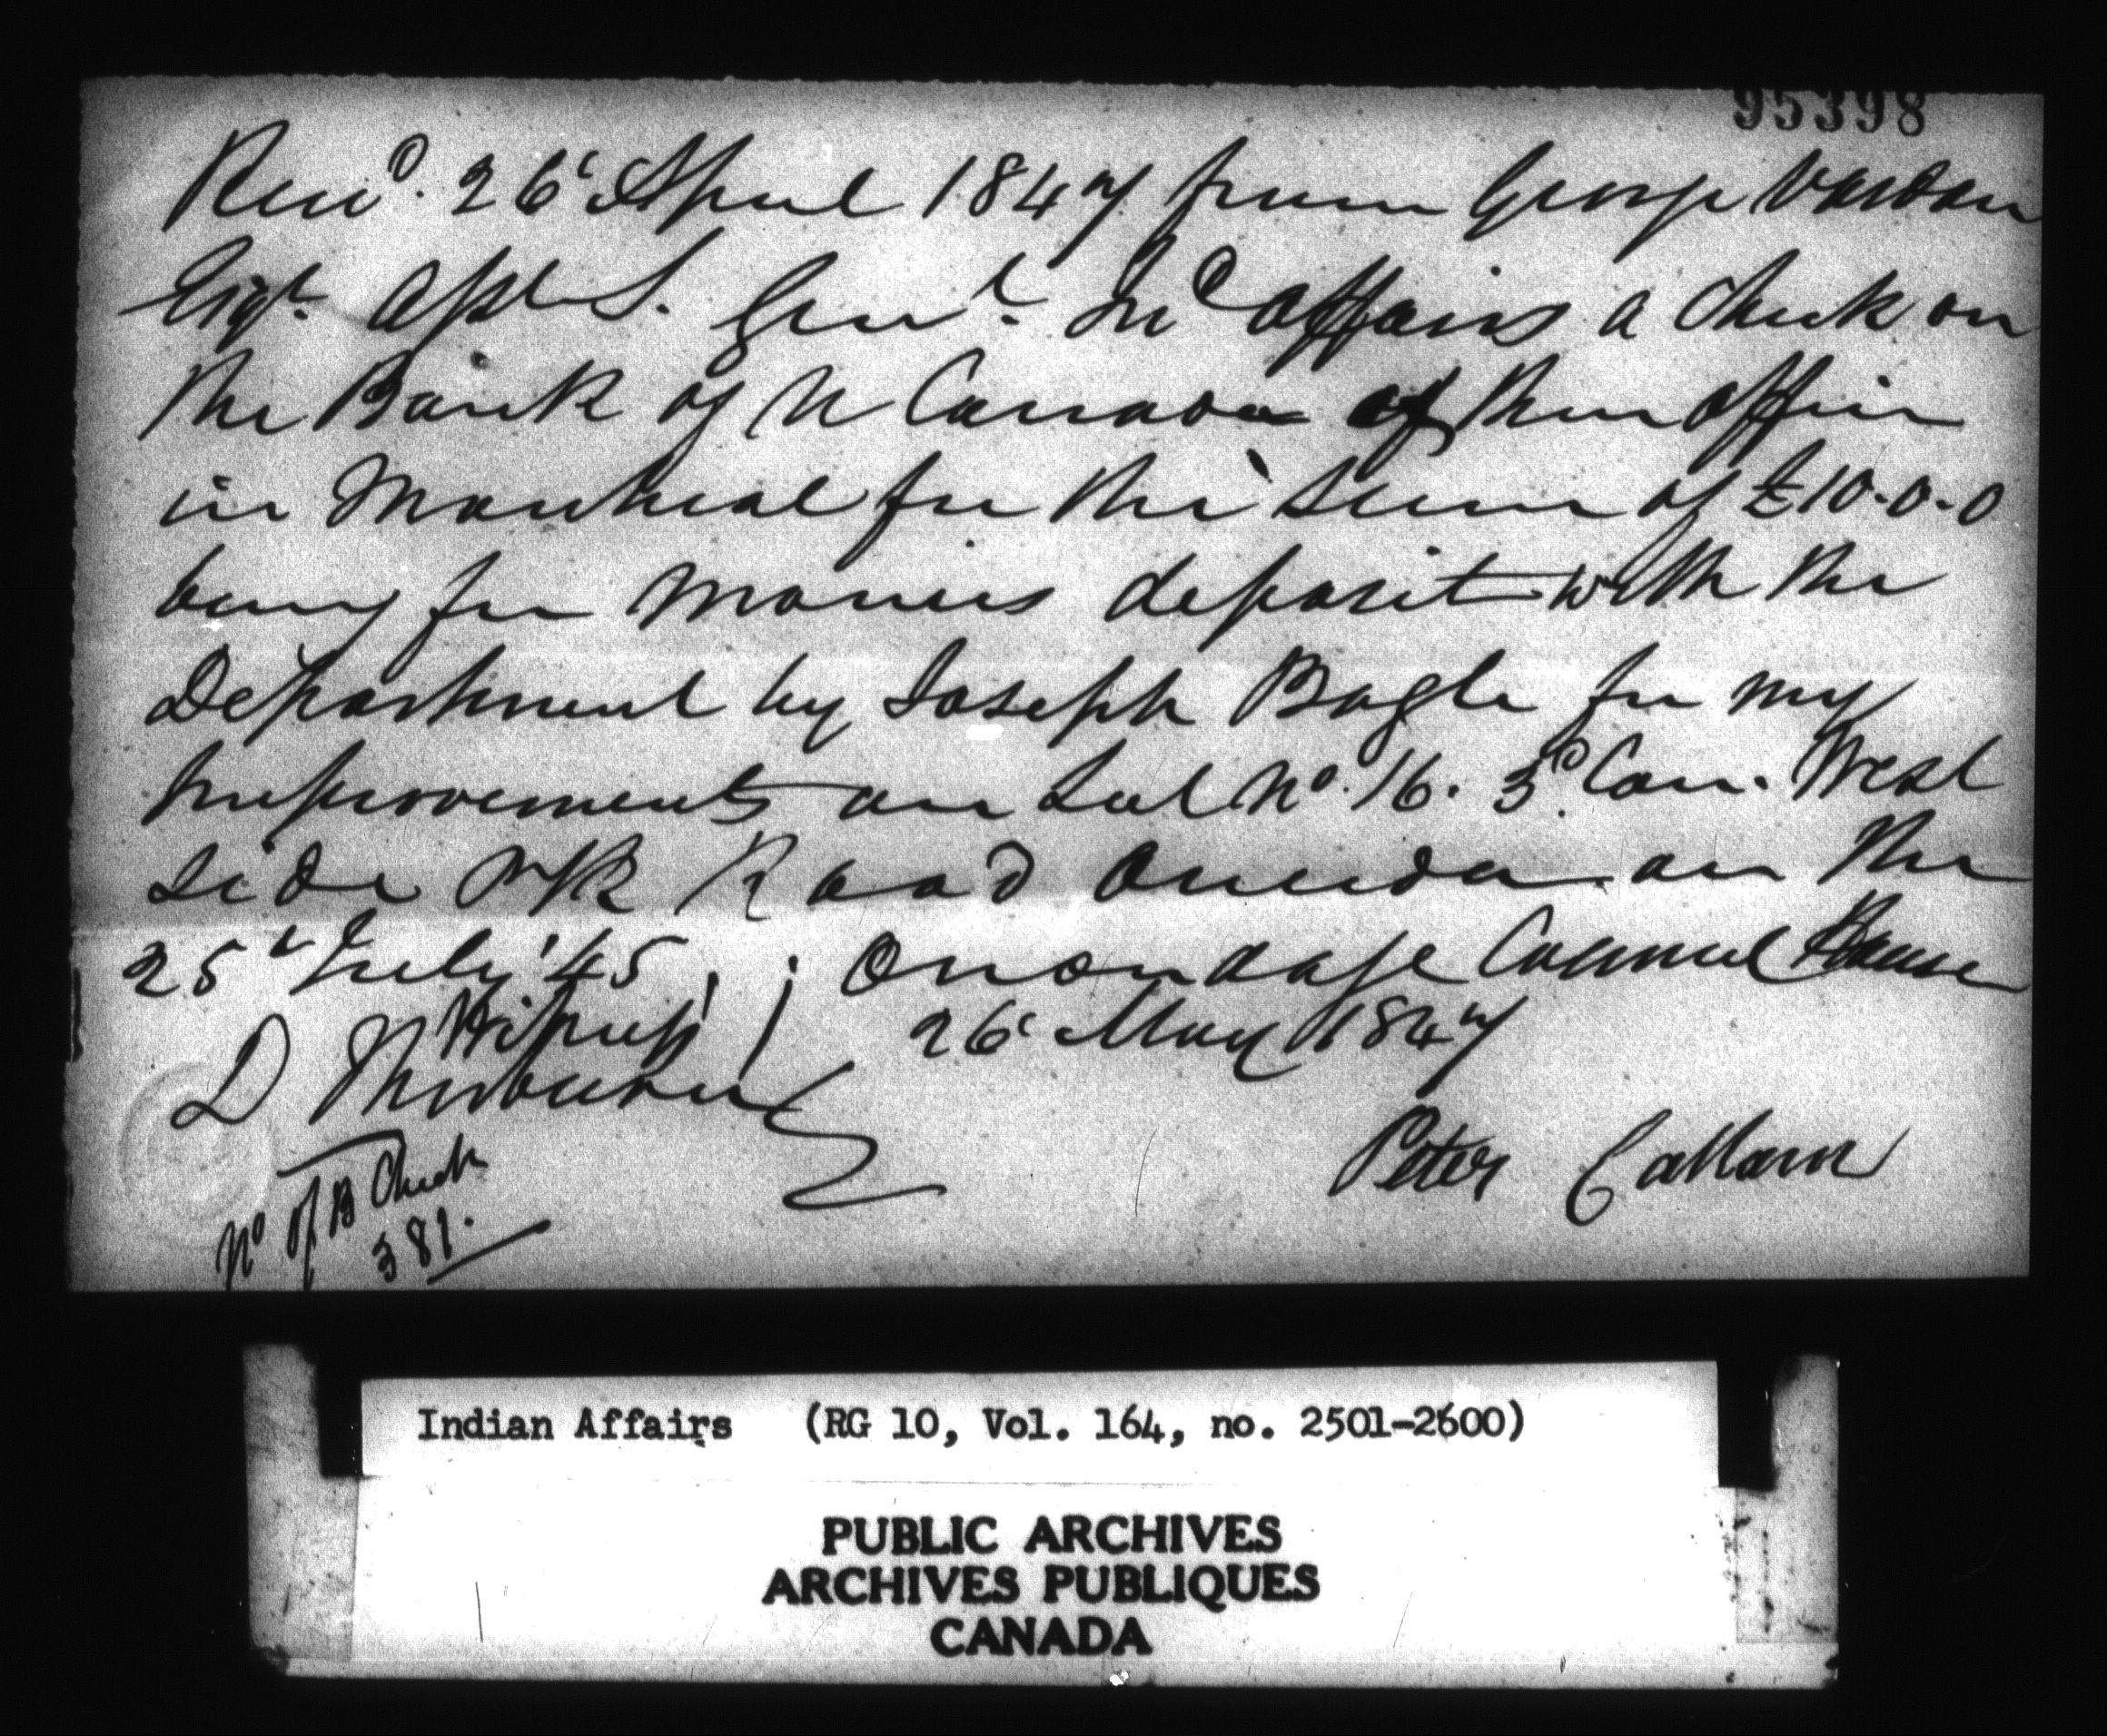 95398
Recd. 26t April 1847 from George Vardon
Esqr. Asst. S. Genl. Ind affairs a Check on
the Bank of U Canada of their office
in Montreal for the Sum of £10-0-0
being for Monies deposit with the
Department by Joseph Bogle for my
Improvements on Lot No. 16. 3d. Con. West
Side P R Road Oneida on the
25t July '45 ; Onondage Council House
Witness 26t May 1847
D Thorburn
Peter Callam
No of B Check
381.
Indian Affairs (RG 10, Vol. 164, no. 2501-2600)
PUBLIC ARCHIVES
ARCHIVES PUBLIQUES
CANADA